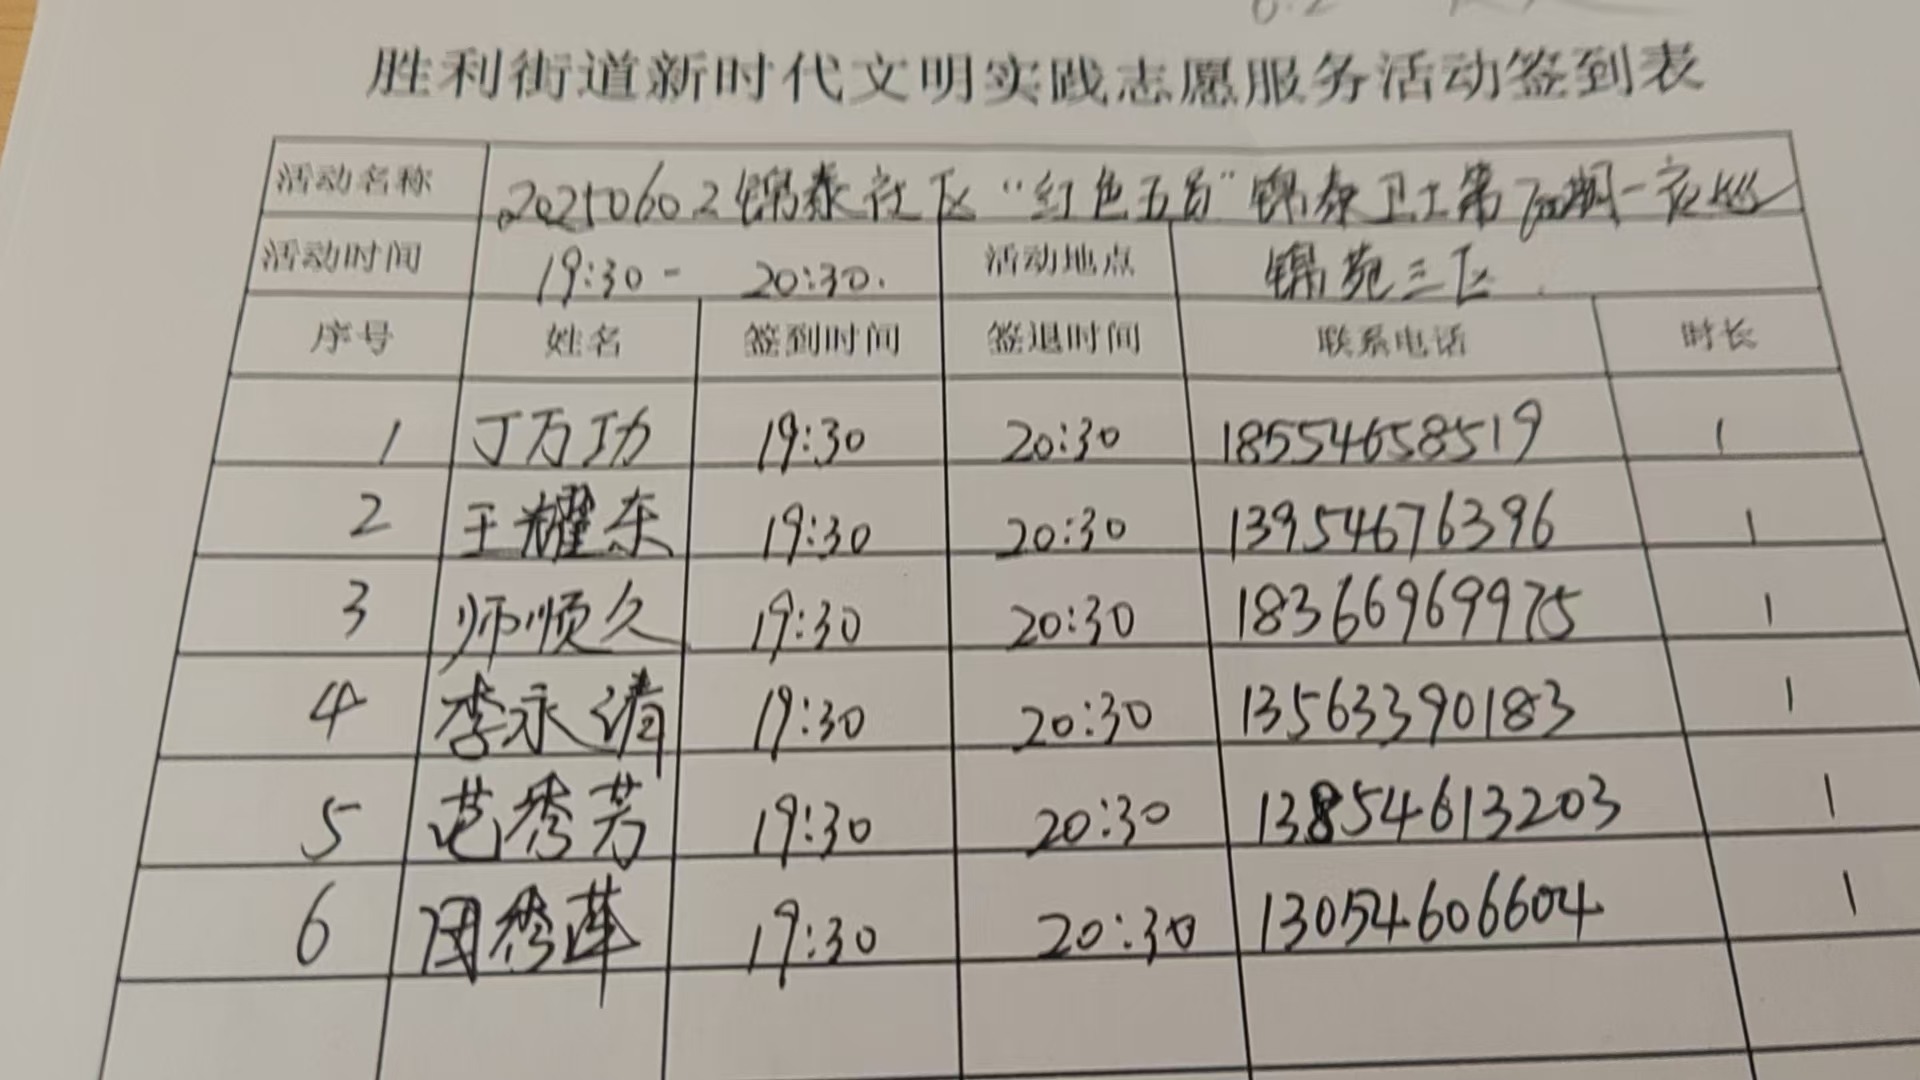 胜利街道新时代文明实践志愿服务活动签到表
活动名称 20250602锦泰社区“红色五员”锦泰卫士第 期一夜巡
活动时间 19:30- 20:30. 活动地点 锦苑三区
序号 姓名 签到时间 签退时间 联系电话 时长
1 丁万功 19:30 20:30 18554658519 1
2 王耀东 19:30 20:30 13954676396 1
3 师顺久 19:30 20:30 18366969975 1
4 李永清 19:30 20:30 13563390183 1
5 范秀芳 19:30 20:30 13854613203 1
6 周秀莲 19:30 20:30 13054606604 1